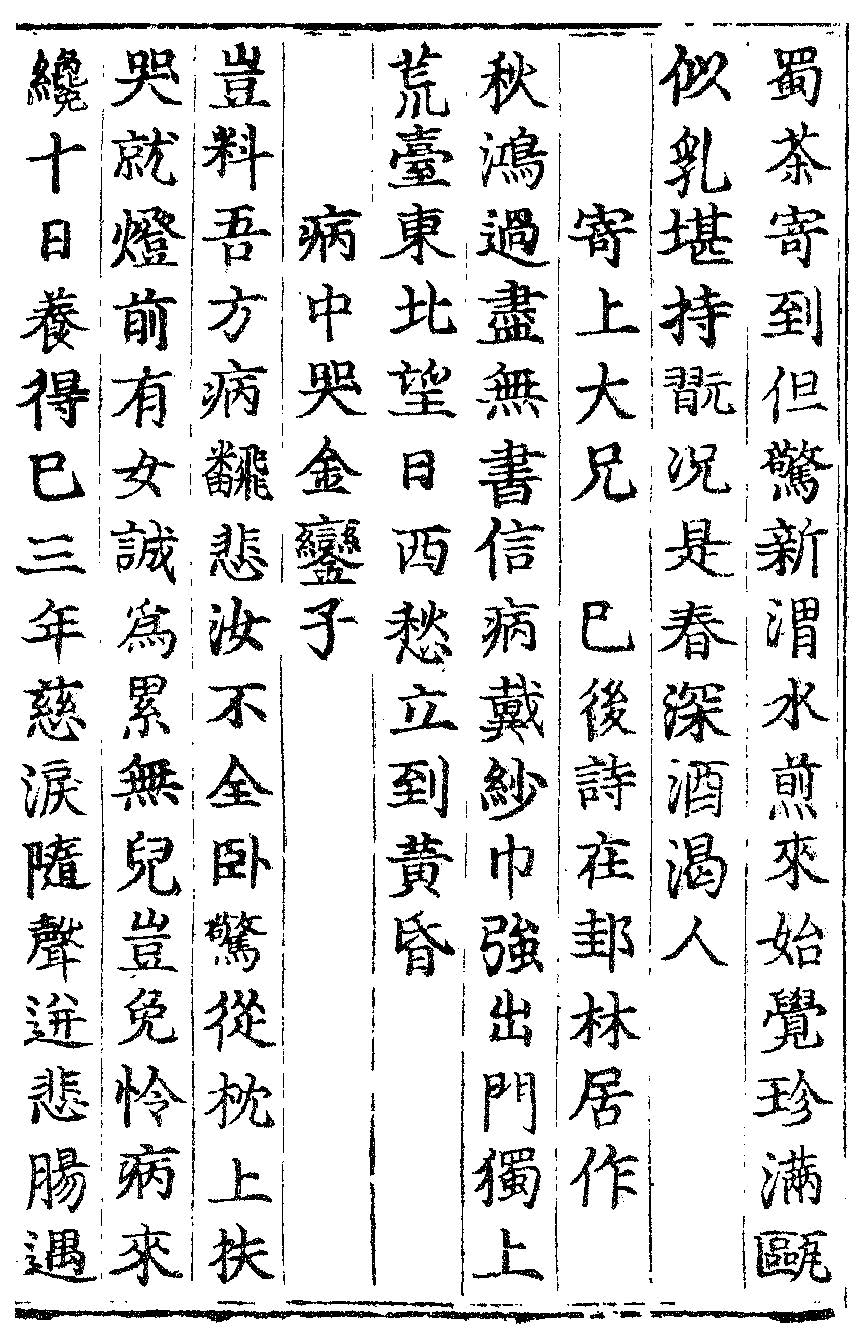 蜀茶寄到但驚新渭水煎來始覺珍滿甌
似乳堪持翫况是春深酒渴人
寄上大兄　巳後詩在邽林居作
秋鴻過盡無書信病戴紗巾強出門獨上
荒臺東北望日西愁立到黃昏
病中哭金鑾子
豈料吾方病飜悲汝不全卧驚從枕上扶
哭就燈前有女誠爲累無兒豈免怜病來
纔十日養得巳三年慈淚隨聲迸悲腸遇